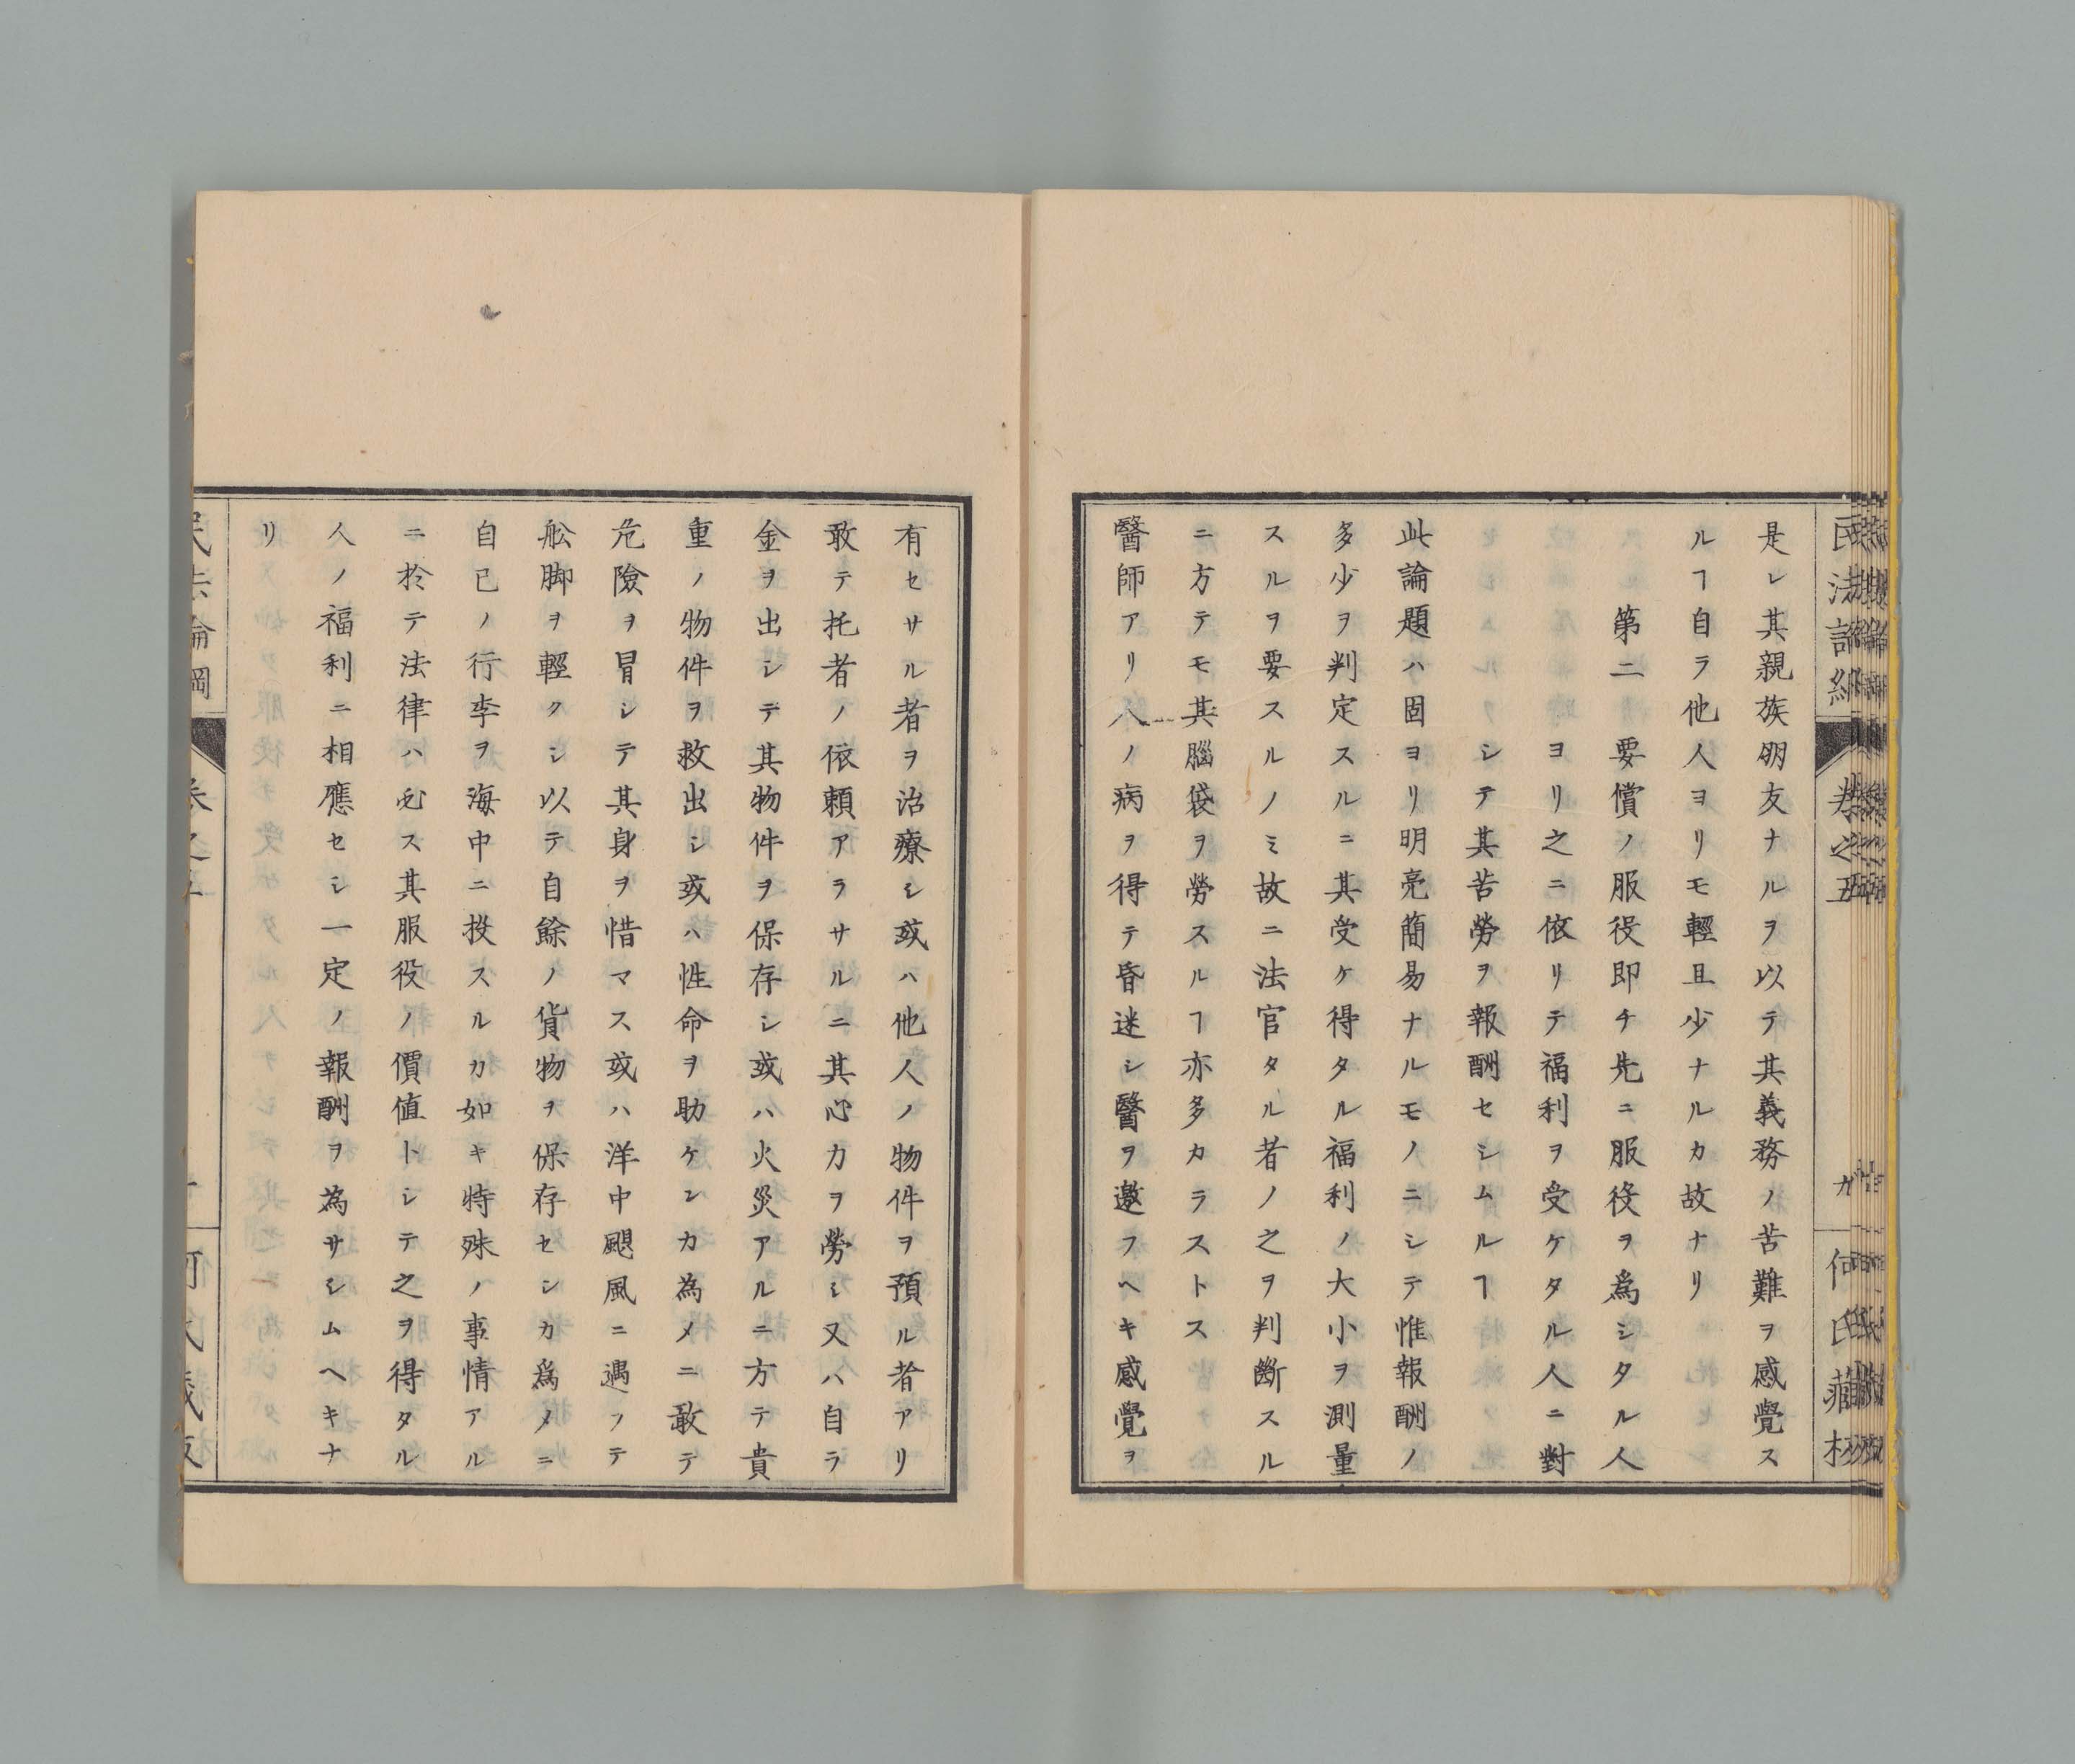 民法論綱 卷之五 九 何氏藏板
是レ其親族朋友ナルヲ以テ其義務ノ苦難ヲ感覺ス
ルヿ自ラ他人ヨリモ輕且少ナルカ故ナリ
第二 要償ノ服役即チ先ニ服役ヲ爲シタル人
ヨリ之ニ依リテ福利ヲ受ケタル人ニ對
シテ其苦勞ヲ報酬セシムルヿ
此論題ハ固ヨリ明亮簡易ナルモノニシテ惟報酬ノ
多少ヲ判定スルニ其受ケ得タル福利ノ大小ヲ測量
スルヲ要スルノミ故ニ法官タル者ノ之ヲ判斷スル
ニ方テモ其腦袋ヲ勞スルヿ亦多カラストス
醫師アリ人ノ病ヲ得テ昏迷シ醫ヲ邀フヘキ感覺ヲ
有セサル者ヲ治療シ或ハ他人ノ物件ヲ預ル者アリ
敢テ托者ノ依頼アラサルニ其心力ヲ勞シ又ハ自ラ
金ヲ出シテ其物件ヲ保存シ或ハ火災アルニ方テ貴
重ノ物件ヲ救出シ或ハ性命ヲ助ケンカ為メニ敢テ
危險ヲ冒シテ其身ヲ惜マス或ハ洋中颶風ニ遇フテ
舩脚ヲ輕クシ以テ自餘ノ貨物ヲ保存センカ爲メニ
自己ノ行李ヲ海中ニ投スルカ如キ特殊ノ事情アル
ニ於テ法律ハ必ス其服役ノ價値トシテ之ヲ得タル
人ノ福利ニ相應セシ一定ノ報酬ヲ為サシムヘキナ
リ
民法論綱 卷之五 十 何氏藏板